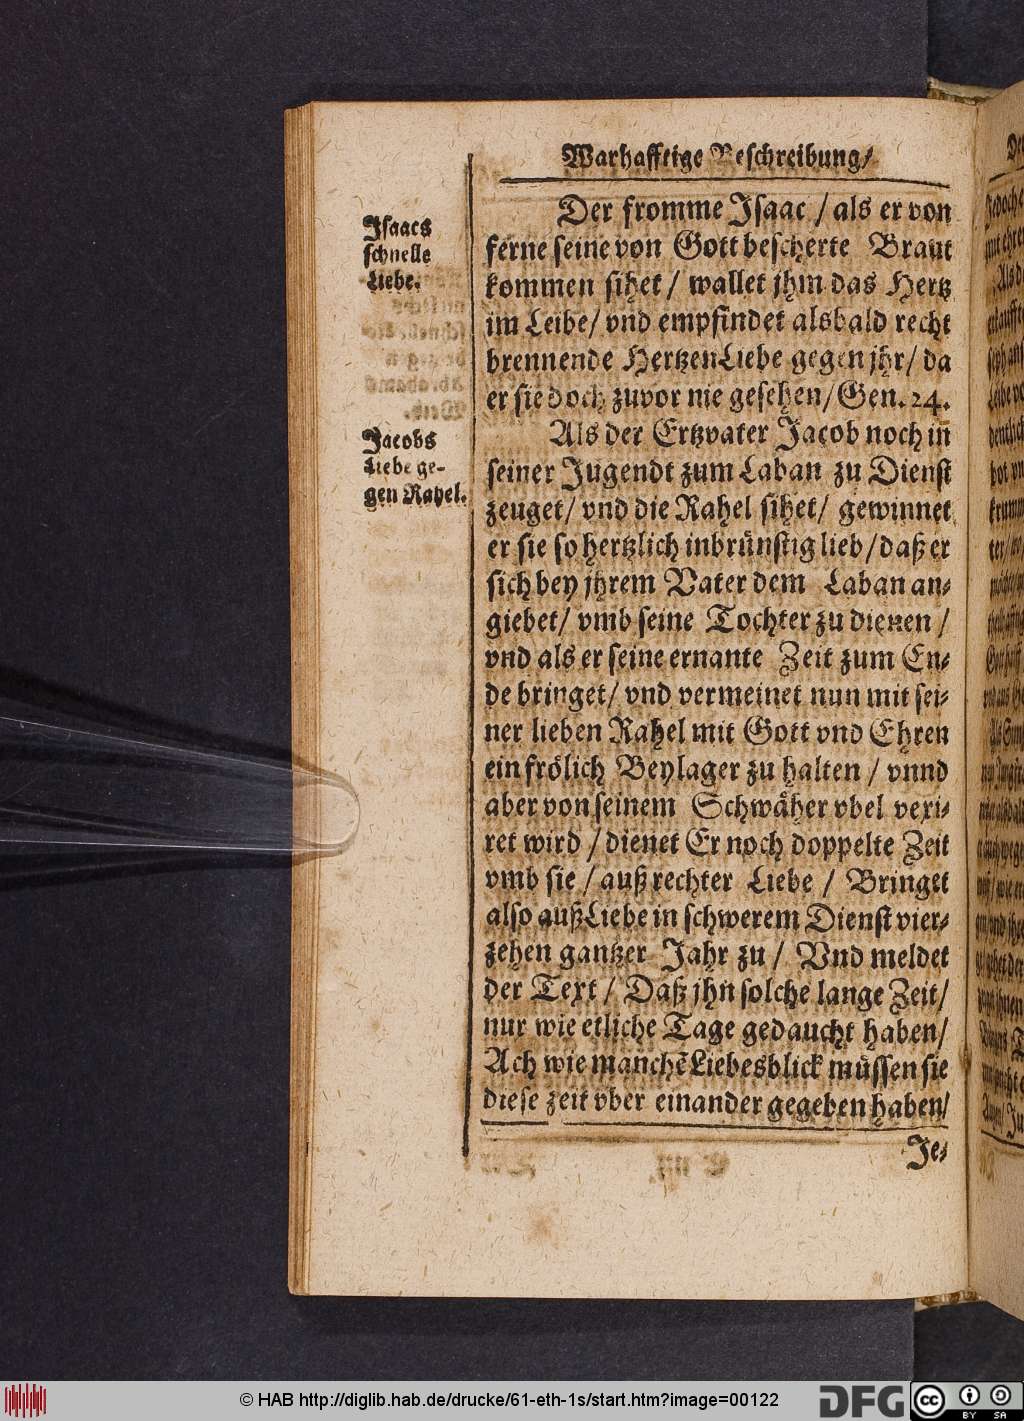 Warhafftige Beschreibung/
Isaacs
schnelle
Liebe.
Der fromme Isaac / als er von
ferne seine von Gott bescherte Braut
kommen sihet / wallet jhm das Hertz
im Leibe/ vnd empfindet alsbald recht
brennende HertzenLiebe gegen jhr/ da
er sie doch zuvor nie gesehen/Gen. 24.
Jacobs
Liebe ge-
gen Rahel.
Als der Ertzvater Jacob noch in
seiner Jugendt zum Laban zu Dienst
zeuget/ vnd die Rahel sihet/ gewinnet
er sie so hertzlich inbrünstig lieb/daß er
sich bey jhrem Vater dem Laban an-
giebet/ vmb seine Tochter zu dienen /
vnd als er seine ernante Zeit zum En-
de bringet/ vnd vermeinet nun mit sei-
ner lieben Rahel mit Gott vnd Ehren
ein frölich Beylager zu halten / vnnd
aber von seinem Schwäher vbel vexi-
ret wird / dienet Er noch doppelte Zeit
vmb sie / auß rechter Liebe / Bringet
also auß Liebe in schwerem Dienst vier-
zehen gantzer Jahr zu / Vnd meldet
der Text / Daß jhn solche lange Zeit/
nur wie etliche Tage gedaucht haben/
Ach wie manchẽ Liebesblick müssen sie
diese zeit vber einander gegeben haben/
Je-
© HAB http://diglib.hab.de/drucke/61-eth-1s/start.htm?image=00122
DFG
cc
BY SA